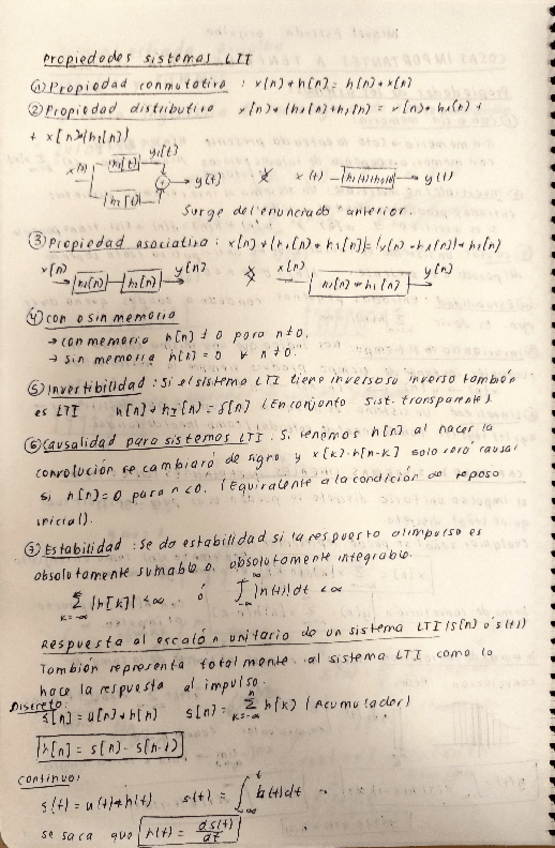 Propiedades sistemas LTI
① Propiedad conmutativa : x[n]*h[n]= h[n]*x[n]
② Propiedad distributiva x[n]*(h₁[n]+h₂[n]) = x[n]*h₁[n] +
+ x[n]*(h₂[n])
x(t) h₁(t) y₁(t) + y(t) x(t) h₁(t)+h₂(t) y(t)
h₂(t)
Surge del enunciado anterior.
③ Propiedad asociativa : x[n]*(h₁[n]*h₂[n])=(x[n]*h₁[n])*h₂[n]
x[n] h₁[n] h₂[n] y[n] x[n] h₁[n]*h₂[n] y[n]
④ Con o sin memoria
→ con memoria h[n] ≠ 0 para n≠0.
→ sin memoria h[n]=0 ∀ n≠0.
⑤ Invertibilidad : Si el sistema LTI tiene inverso su inverso también
es LTI h[n]*h_I[n]=δ[n] (En conjunto sist. transparente)
⑥ Causalidad para sistemas LTI. Si tenemos h[n] al hacer la
convolución se cambiará de signo y x[k]·h[n-k] solo será causal
si h[n]=0 para n<0. (Equivalente a la condición de reposo
inicial).
⑦ Estabilidad : Se da estabilidad si la respuesta al impulso es
absolutamente sumable o absolutamente integrable.
∑_{k=-∞}^{∞} |h[k]| <∞ . ó ∫_{-∞}^{∞} |h(t)| dt <∞
Respuesta al escalón unitario de un sistema LTI (s[n] ó s(t))
También representa totalmente al sistema LTI como lo
hace la respuesta al impulso.
Discreto:
s[n] = u[n]*h[n] s[n] = ∑_{k=-∞}^{n} h[k] (Acumulador)
h[n] = s[n]-s[n-1]
Continuo:
s(t) = u(t)*h(t) s(t) = ∫_{-∞}^{t} h(t)dt
se saca que h(t) = ds(t)/dt